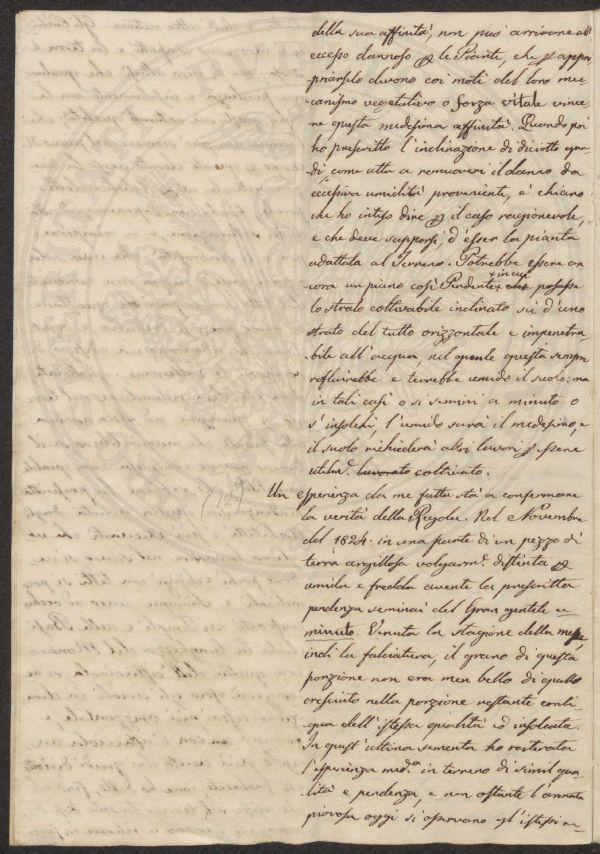 della sua affinità, non può arrivare all'
eccesso dannoso per le Piante, che per appro
priarselo devono coi moti del loro mec
canismo vegetativo o forza vitale vince
re questa medesima affinità. Quando poi
ho prescritto l'inclinazione di diciotto gra
di come atta a remuovere il danno da
eccessiva umidità proveniente, e' chiaro
che ho inteso dire per il caso ragionevole,
e che deve supporsi, d'esser la pianta
adattata al Terreno. Potrebbe essere an
cora un piano così Pendente, che posasse
in cui
lo strato coltivabile inclinato su d'uno
strato del tutto orizzontale e impenetra
bile all'acqua, nel quale questa sempre
refluirebbe e terrebbe umido il suolo: ma
in tali casi o si semini a minuto o
s'insolchi, l'umido sarà il medesimo, e
il suolo richiederà altri lavori per essere
utilm.e lavorato coltivato.
Un esperienza da me fatta stà a confermare
la verità della Regola. Nel Novembre
del 1824 in una parte di un pezzo di
terra argillosa volgarm.e distinta per
umida e fredda avente la prescritta
pendenza seminai del Gran gentile a
minuto. Venuta la stagione della messe,
indi la falciatura, il grano di questa
porzione non era men bello di quello
cresciuto nella porzione restante conti
gua dell'istessa qualità ed insolcata.
In quest'ultima sementa ho reiterata
l'esperienza med.a in terreno di simil qua
lità e pendenza, e non ostante l'annata
piovosa oggi si osservano gl'istessi re=